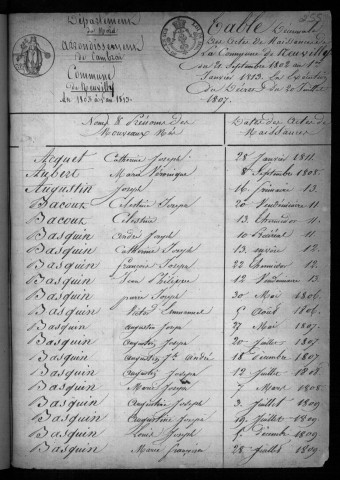 Département
du Nord
Arrondissement
de Cambrai
Commune
de Neuvilly
An 1803 à l'an 1813.
Table Décennale
Des Actes De Naissances de
La Commune de Neuvilly
du 21 Septembre 1802 au 1er
Janvier 1813. En Exécution
du Décret du 20 Juillet
1807.
Noms & Prénoms des Nouveaux Nés Dates des Actes de Naissances
Acquet Catherine Joseph 28 Janvier 1811.
Aubert Marie Véronique 8 Septembre 1808.
Augustin Joseph 16 frimaire 13.
Bacoux Célestin Joseph 20 Vendémiaire 11.
Bacoux Célestin 13 thermidor 11.
Basquin André Joseph 10 floréal 11.
Basquin Catherine Joseph 13 nivose 12.
Basquin françois Joseph 22 thermidor 12.
Basquin 12 Vendémiaire 13.
Basquin pierre Joseph 30 Mai 1806.
Basquin Victor Emmanuel 5 Août 1806.
Basquin augustin Joseph 27 Mai 1807.
Basquin augustin Joseph 20 Juillet 1807.
Basquin augustin andré 18 Décembre 1807.
Basquin augustin Joseph 12 Juillet 1808.
Basquin Marie Joseph 7 Mars 1808.
Basquin Augustin Joseph 3 Juillet 1809.
Basquin Augustine Joseph 19 Juillet 1809.
Basquin Louis Joseph 5 Décembre 1809.
Basquin Marie françoise 28 Juillet 1809.